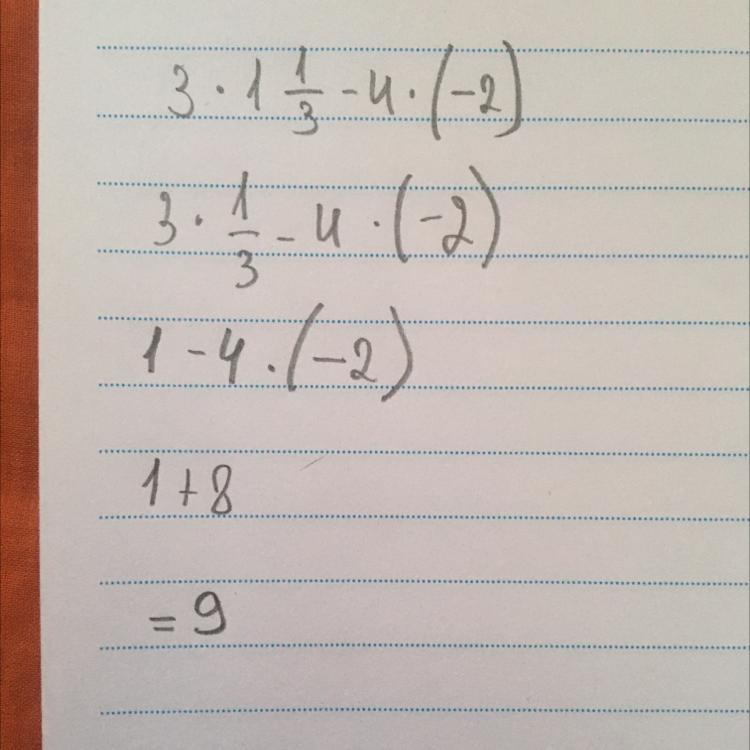 3 · 1 1/3 - 4 · (-2)
3 · 1/3 - 4 · (-2)
1 - 4 · (-2)
1 + 8
= 9